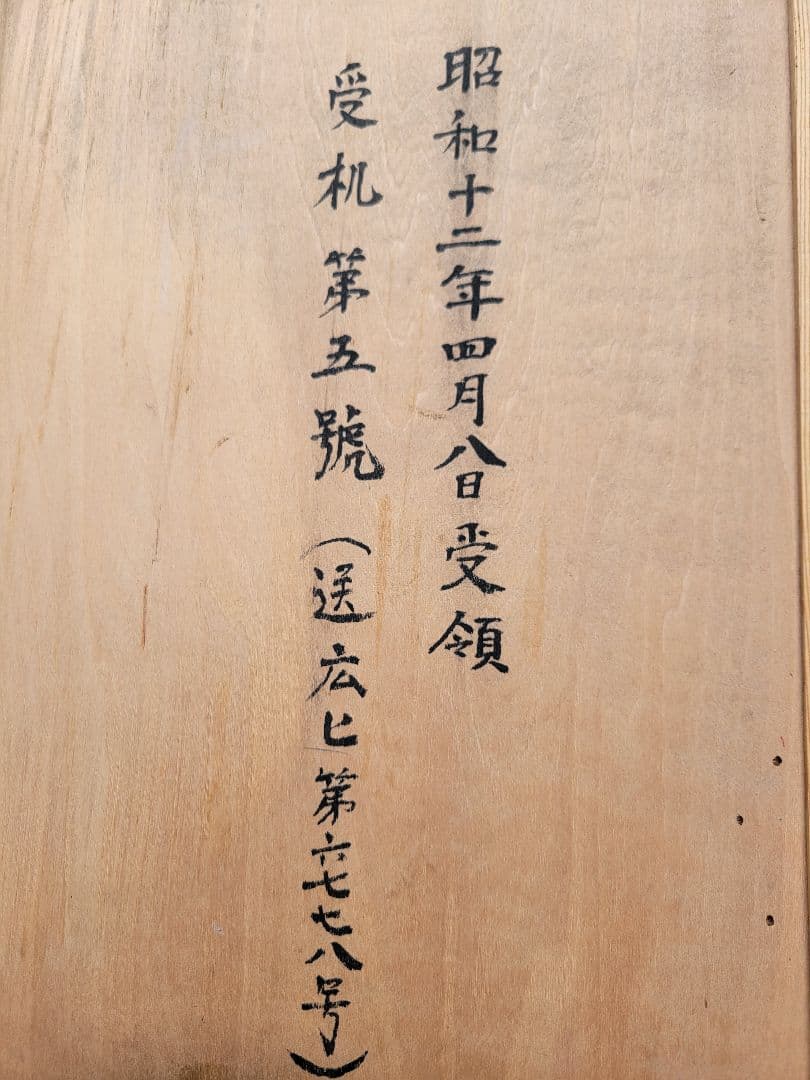 昭和十二年四月八日受領
受机第五號(送広ヒ第六七七八号)